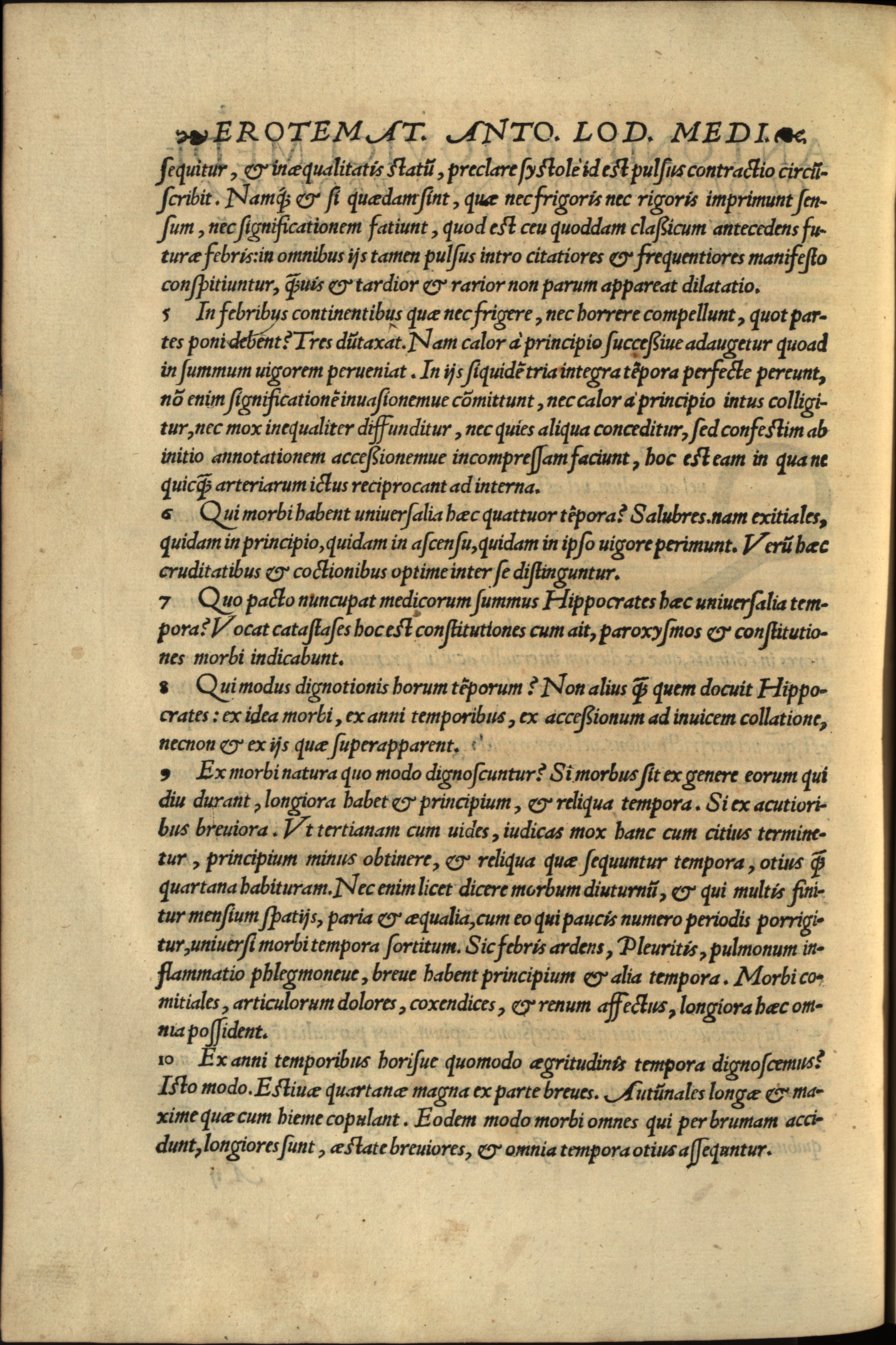 EROTEMAT. ANTO. LOD. MEDI.
sequitur, & inæqualitatis statũ, preclare systole id est pulsus contractio circũ-
scribit. Namq̃ & si quædam sint, quæ nec frigoris nec rigoris imprimunt sen-
sum, nec significationem fatiunt, quod est ceu quoddam claßicum antecedens fu-
turæ febris: in omnibus ijs tamen pulsus intro citatiores & frequentiores manifesto
conspitiuntur, q̃uis & tardior & rarior non parum appareat dilatatio.
5 In febribus continentibus quæ nec frigere, nec horrere compellunt, quot par-
tes poni debent? Tres dũtaxat. Nam calor à principio succeßiue adaugetur quoad
in summum uigorem perueniat. In ijs siquidẽ tria integra tẽpora perfecte pereunt,
nõ enim significationẽ inuasionemue cõmittunt, nec calor à principio intus colligi-
tur, nec mox inequaliter diffunditur, nec quies aliqua conceditur, sed confestim ab
initio annotationem acceßionemue incompressam faciunt, hoc est eam in qua ne
quicq̃ arteriarum ictus reciprocant ad interna.
6 Qui morbi habent uniuersalia hæc quattuor tẽpora? Salubres. nam exitiales,
quidam in principio, quidam in ascensu, quidam in ipso uigore perimunt. Verũ hæc
cruditatibus & coctionibus optime inter se distinguntur.
7 Quo pacto nuncupat medicorum summus Hippocrates hæc uniuersalia tem-
pora? Vocat catastases hoc est constitutiones cum ait, paroxysmos & constitutio-
nes morbi indicabunt.
8 Qui modus dignotionis horum tẽporum? Non alius q̃ quem docuit Hippo-
crates: ex idea morbi, ex anni temporibus, ex acceßionum ad inuicem collatione,
necnon & ex ijs quæ superapparent.
9 Ex morbi natura quo modo dignoscuntur? Si morbus sit ex genere eorum qui
diu durant, longiora habet & principium, & reliqua tempora. Si ex acutiori-
bus breuiora. Vt tertianam cum uides, iudicas mox hanc cum citius termine-
tur, principium minus obtinere, & reliqua quæ sequuntur tempora, otius q̃
quartana habituram. Nec enim licet dicere morbum diuturnũ, & qui multis fini-
tur mensium spatijs, paria & æqualia, cum eo qui paucis numero periodis porrigi-
tur, uniuersi morbi tempora sortitum. Sic febris ardens, Pleuritis, pulmonum in-
flammatio phlegmoneue, breue habent principium & alia tempora. Morbi co-
mitiales, articulorum dolores, coxendices, & renum affectus, longiora hæc om-
nia possident.
10 Ex anni temporibus horisue quomodo ægritudinis tempora dignoscemus?
Isto modo. Estiuæ quartanæ magna ex parte breues. Autũnales longæ & ma-
xime quæ cum hieme copulant. Eodem modo morbi omnes qui per brumam acci-
dunt, longiores sunt, æstate breuiores, & omnia tempora otius assequntur.